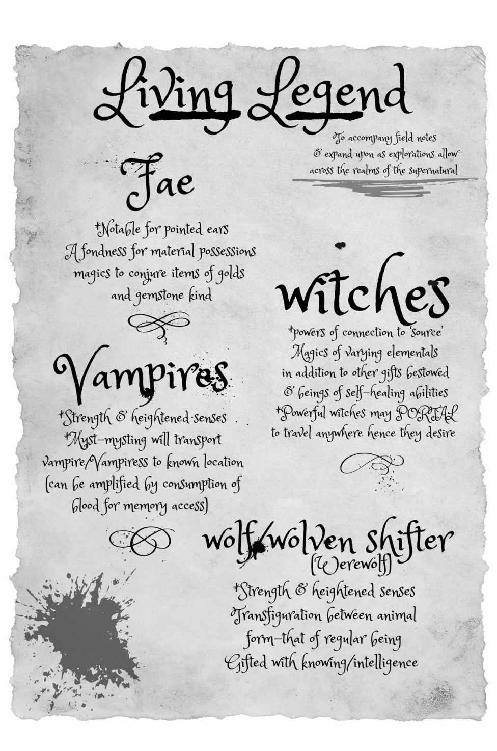 Living Legend
To accompany field notes
& expand upon as explorations allow
across the realms of the supernatural
Fae
*Notable for pointed ears
A fondness for material possessions
magics to conjure items of golds
and gemstone kind
witches
*powers of connection to 'source'
Magics of varying elementals
in addition to other gifts bestowed
& beings of self-healing abilities
*Powerful witches may PORTAL
to travel anywhere hence they desire
Vampires
*Strength & heightened senses
*Myst-mysting will transport
vampire/Vampiress to known location
(can be amplified by consumption of
blood for memory access)
wolf/wolven shifter
(Werewolf)
*Strength & heightened senses
Transfiguration between animal
form-that of regular being
Gifted with knowing/intelligence